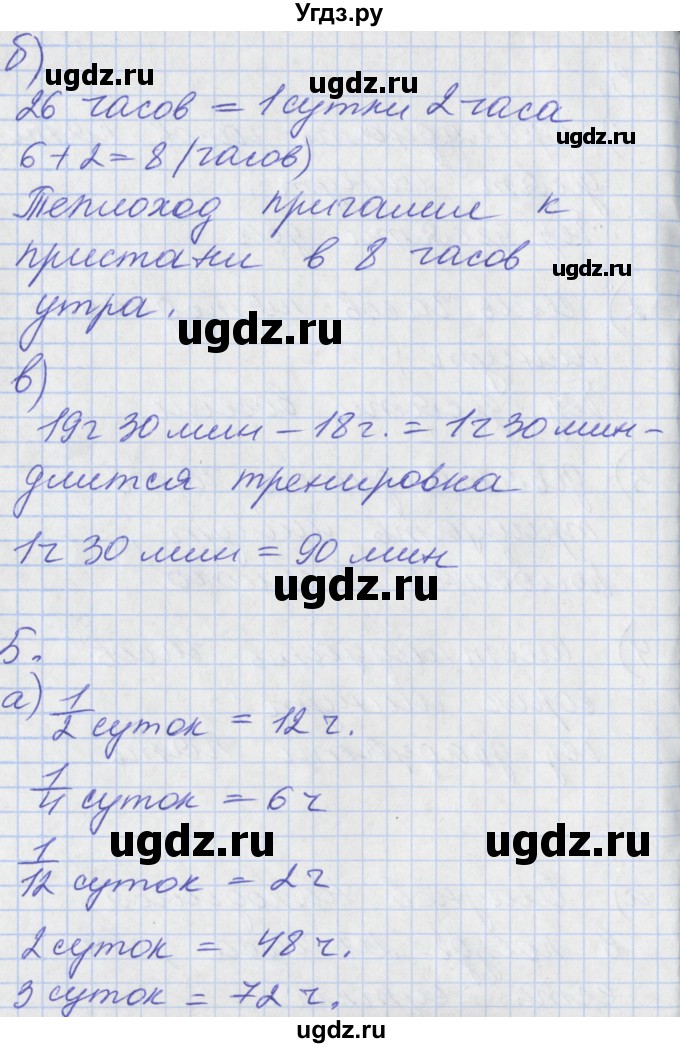 Угдз.ру
б)
26 часов = 1 сутки 2 часа
6 + 2 = 8 (часов)
Теплоход причалил к
пристани в 8 часов
утра.
в)
19ч 30 мин – 18 ч. = 1ч 30 мин –
длится тренировка
1ч 30 мин = 90 мин
5.
а) 1/2 суток = 12 ч.
1/4 суток = 6 ч
1/12 суток = 2 ч
2 суток = 48 ч.
3 суток = 72 ч.
ugdz.ru
ugdz.ru
ugdz.ru
ugdz.ru
ugdz.ru
ugdz.ru
ugdz.ru
ugdz.ru
ugdz.ru